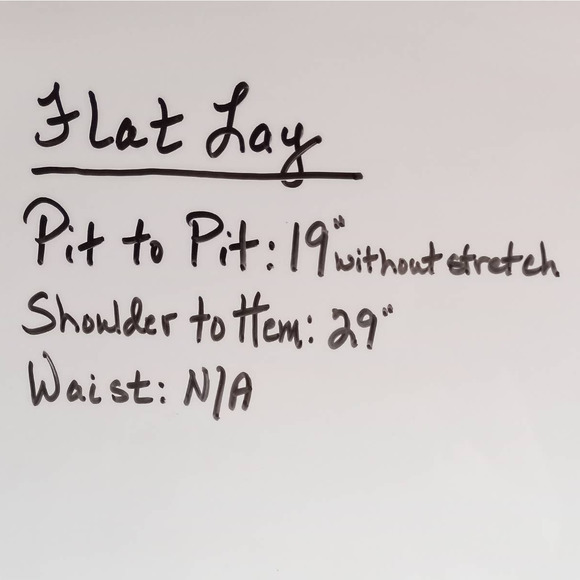 Flat Lay
Pit to Pit: 19" without stretch
Shoulder to Hem: 29"
Waist: N/A